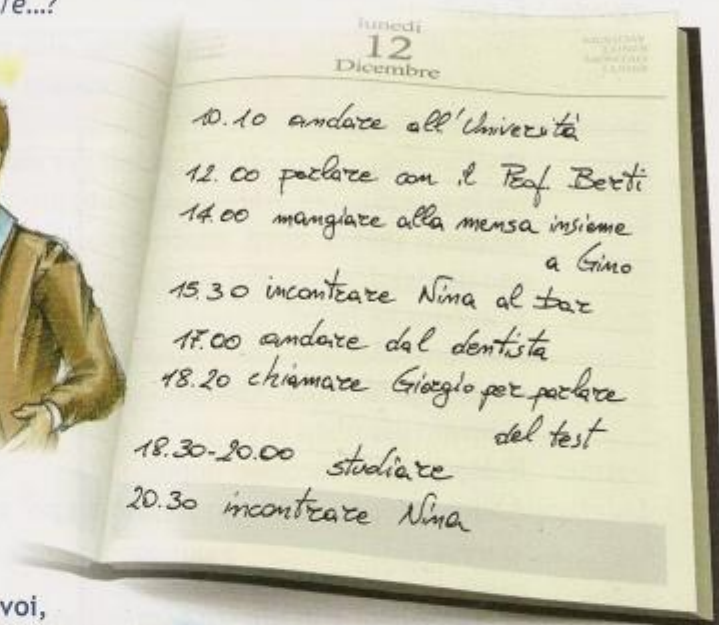 e...?
lunedì
12
Dicembre
10.10 andare all'Università
12.00 parlare con il Prof. Berti
14.00 mangiare alla mensa insieme
a Gino
15.30 incontrare Nina al bar
17.00 andare dal dentista
18.20 chiamare Giorgio per parlare
del test
18.30-20.00 studiare
20.30 incontrare Nina
voi,